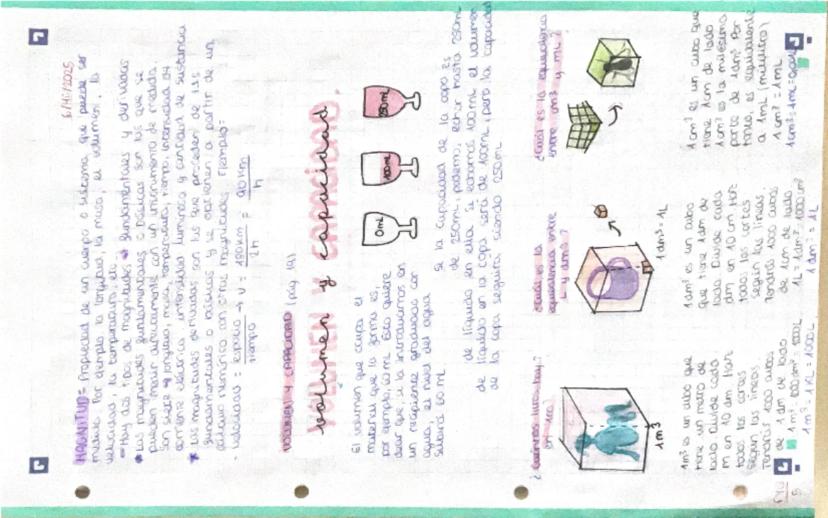 6/11/2025
MAGNITUD = Propiedad de un cuerpo o sistema que puede ser
medido. Por ejemplo la longitud, la masa, el volumen, la
velocidad, la temperatura, etc.
Hay dos tipos de magnitudes → fundamentales y derivadas
Las magnitudes fundamentales o básicas son las que se
pueden medir directamente con un instrumento de medida.
Son siete → longitud, masa, temperatura, tiempo, intensidad de
corriente eléctrica, intensidad luminosa y cantidad de sustancia
Las magnitudes derivadas son las que proceden de las
fundamentales o básicas y se obtienen a partir de un
cálculo numérico con otras magnitudes. Ejemplo =
- velocidad = espacio / tiempo → v = 180km / 2h = 90km / h
VOLUMEN Y CAPACIDAD (pág 14)
VOLUMEN Y CAPACIDAD.
volumen y capacidad
El volumen que ocupa el
material que la forma es,
por ejemplo, 60 mL. Esto quiere
decir que, si la introducimos en
un recipiente graduado con
agua, el nivel del agua
subirá 60 mL.
0mL
100mL
250mL
Si la capacidad de la copa es
de 250mL, podemos echar hasta 250mL
de líquido en ella. Si echamos 100mL el volumen
de líquido en la copa será de 100mL, pero la capacidad
de la copa seguirá siendo 250mL
¿Cuántos litros hay?
en 1m³
1m³
1m³ es un cubo que
tiene un metro de
lado. Divide cada
m en 10 dm. Haz
todos los cortes
según las líneas.
Tendrás 1000 cubos
de 1 dm de lado
1m³ = 1000dm³ = 1000L
1m³ = 1kL = 1000L
¿Cuál es la
equivalencia entre
L y dm³?
1dm³ = 1L
1dm³ es un cubo
que tiene 1dm de
lado. Divide cada
dm en 10 cm. Haz
todos los cortes
según las líneas.
Tendrás 1000 cubos
de 1cm de lado.
1L = 1dm³ = 1000cm³
1dm³ = 1L
¿Cuál es la equivalencia
entre cm³ y mL?
1cm³ es un cubo que
tiene 1cm de lado
1cm³ es la milésima
parte de 1dm³. Por
tanto, es equivalente
a 1mL (mililitro)
1cm³ = 1mL
1cm³ = 1mL = 0,001L